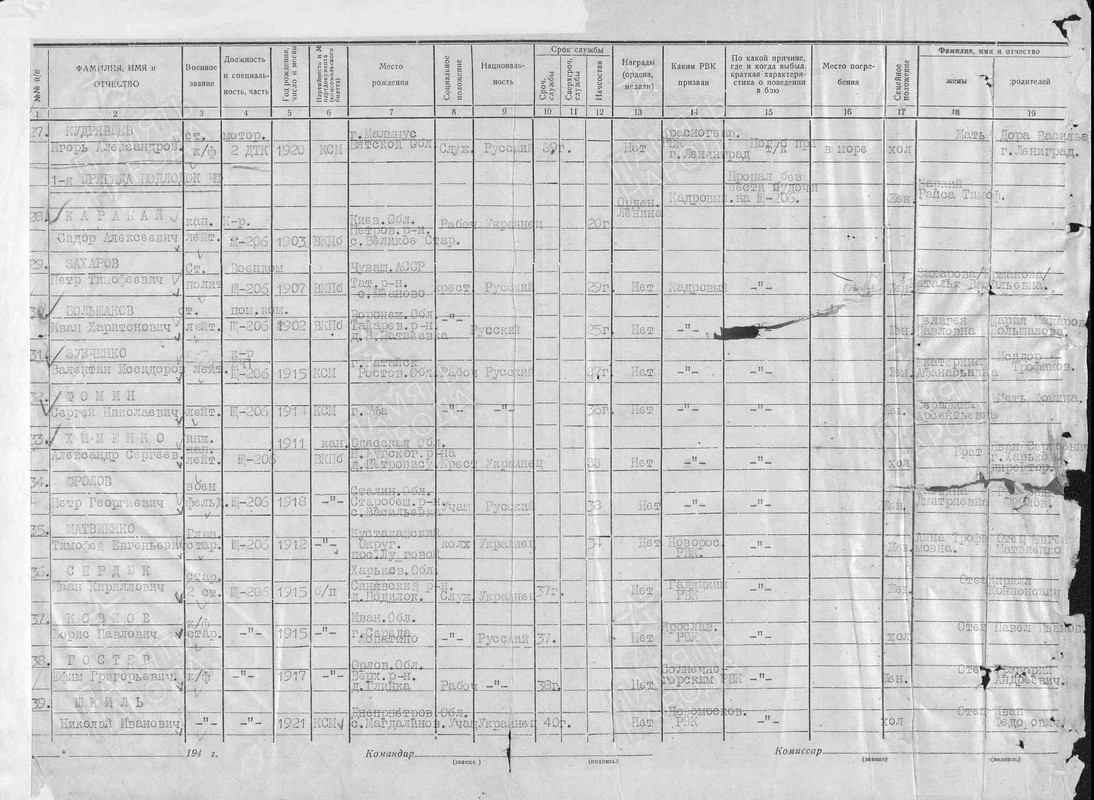 №№ п/п | ФАМИЛИЯ, ИМЯ и ОТЧЕСТВО | Военное звание | Должность и специальность, часть | Год рождения, число и месяц | Партийность и № партдокумента (комсомольского билета) | Место рождения | Социальное положение | Националь-ность | Срок службы: Сроч. службы | Сверхсроч. службы | Начсостав | Награды (ордена, медали) | Каким РВК призван | По какой причине, где и когда выбыл, краткая характеристика о поведении в бою | Место погребения | Семейное положение | Фамилия, имя и отчество: жены | родителей
1 2 3 4 5 6 7 8 9 10 11 12 13 14 15 16 17 18 19
27. КУДРЯВЦЕВ ст. мотор. г.Малмыс Красногвар. Мать Дора Василье
Игорь Александров. к/ф 2 ДТК 1920 КСМ Вятской Обл. Служ. Русский 39г. Нет РВК г.Ленинград в море хол г.Лениград.
1-я БРИГАДА ПОДЛОДОК
Пропал без
вести будучи
Кадровый .на Щ-206. Жен. Раиса Тимоф.
28. КАРАКАЙ кап. К-р. Киев.Обл. Рабоч Украинец 20г. Орден. Ленина
Сидор Алексеевич лейт. Щ-206 1903 ВКПб Петров.р-н. с.Великое Стар.
29. ЗАХАРОВ Ст. Военком Чуваш.АССР Захарова/Ермакова/
Петр Тимофеевич полит Щ-206 1907 ВКПб Тат.р-н. крест. Русский 29г. Нет Кадровый -"- Жен. Наталья Васильевна.
БОЛЬШАКОВ ст. пом.ком. Воронеж.Обл. -"- Пелагея Мария Макаров
Иван Харитонович лейт. Щ-206 1902 ВКПб Токарев.р-н. д.Н.Матвеевка Русский 25г. Нет -"- Жен. Павловна Большакова.
31. ЗУБЧЕНКО к-р г.Батайск Екатерина Исидор
Валентин Иссидоров лейт. Щ-206 1915 КСМ Ростов.Обл. Рабоч Русский 37г. Нет -"- -"- Жен. Афанасьевна Трофимов.
32. ФОМИН Серафима Мать Фомина.
Сергей Николаевич лейт. Щ-206 КСМ г.Уфа -"- -"- Нет -"- -"- Жен.
33. ХИМЕНКО инж. 1911 кан. Одесская Обл. Брат Иван Сергеевич
Александр Сергеев. кап. лейт. Щ-206 ВКПб Крест Украинец 38 Нет -"- -"- хол г.Харьков директор.
34. ФРОЛОВ воен Сталин.Обл.
Петр Георгиевич фельд. Щ-206 1918 -"- Старобеш.р-н. с.Васильевка Учащ Русский 38 Нет -"- Жен. Дмитриевна Фролов.
35. МАТВИЕНКО Глав. Кустанайский Анна Троф Отец Евген
Тимофей Евгеньевич стар. Щ-206 1912 -"- Округ. пос.Луговой колх Украинец 34 Нет Новорос. РВК. -"- Жен. мовна. Матвиенко
36. СЕРДЮК стар. Харьков.Обл. Отец Кирилл
Иван Кириллович 2 ст. Щ-206 1915 б/п Синявский р-н. Служ. Украинец 37г. Нет Гадяцким РВК -"- Жен. Кононович
37. к/ф Иван.Обл.
Борис Павлович стар. -"- 1915 -"- г.Середа -"- Русский 37. Нет Ярослав. РВК. -"- хол Отец Павел Иванов.
38. ГОСТЕВ Орлов.Обл. Солнечно- Отец Григорий
Ефим Григорьевич. к/ф -"- 1917 -"- Верх.р-н. д.Глинка Рабоч -"- 38г. Нет горским РВК -"- Жен. Андреевич.
39. ШКИЛЬ Днепрпетров.Обл. Новомосков. Отец Иван
Николай Иванович -"- -"- 1921 КСМ с.Магдалинов. Учащ Украинец 40г. Нет РВК -"- хол Федорович.
" 194 г. Командир (звание) (подпись) Комиссар (звание) (подпись)